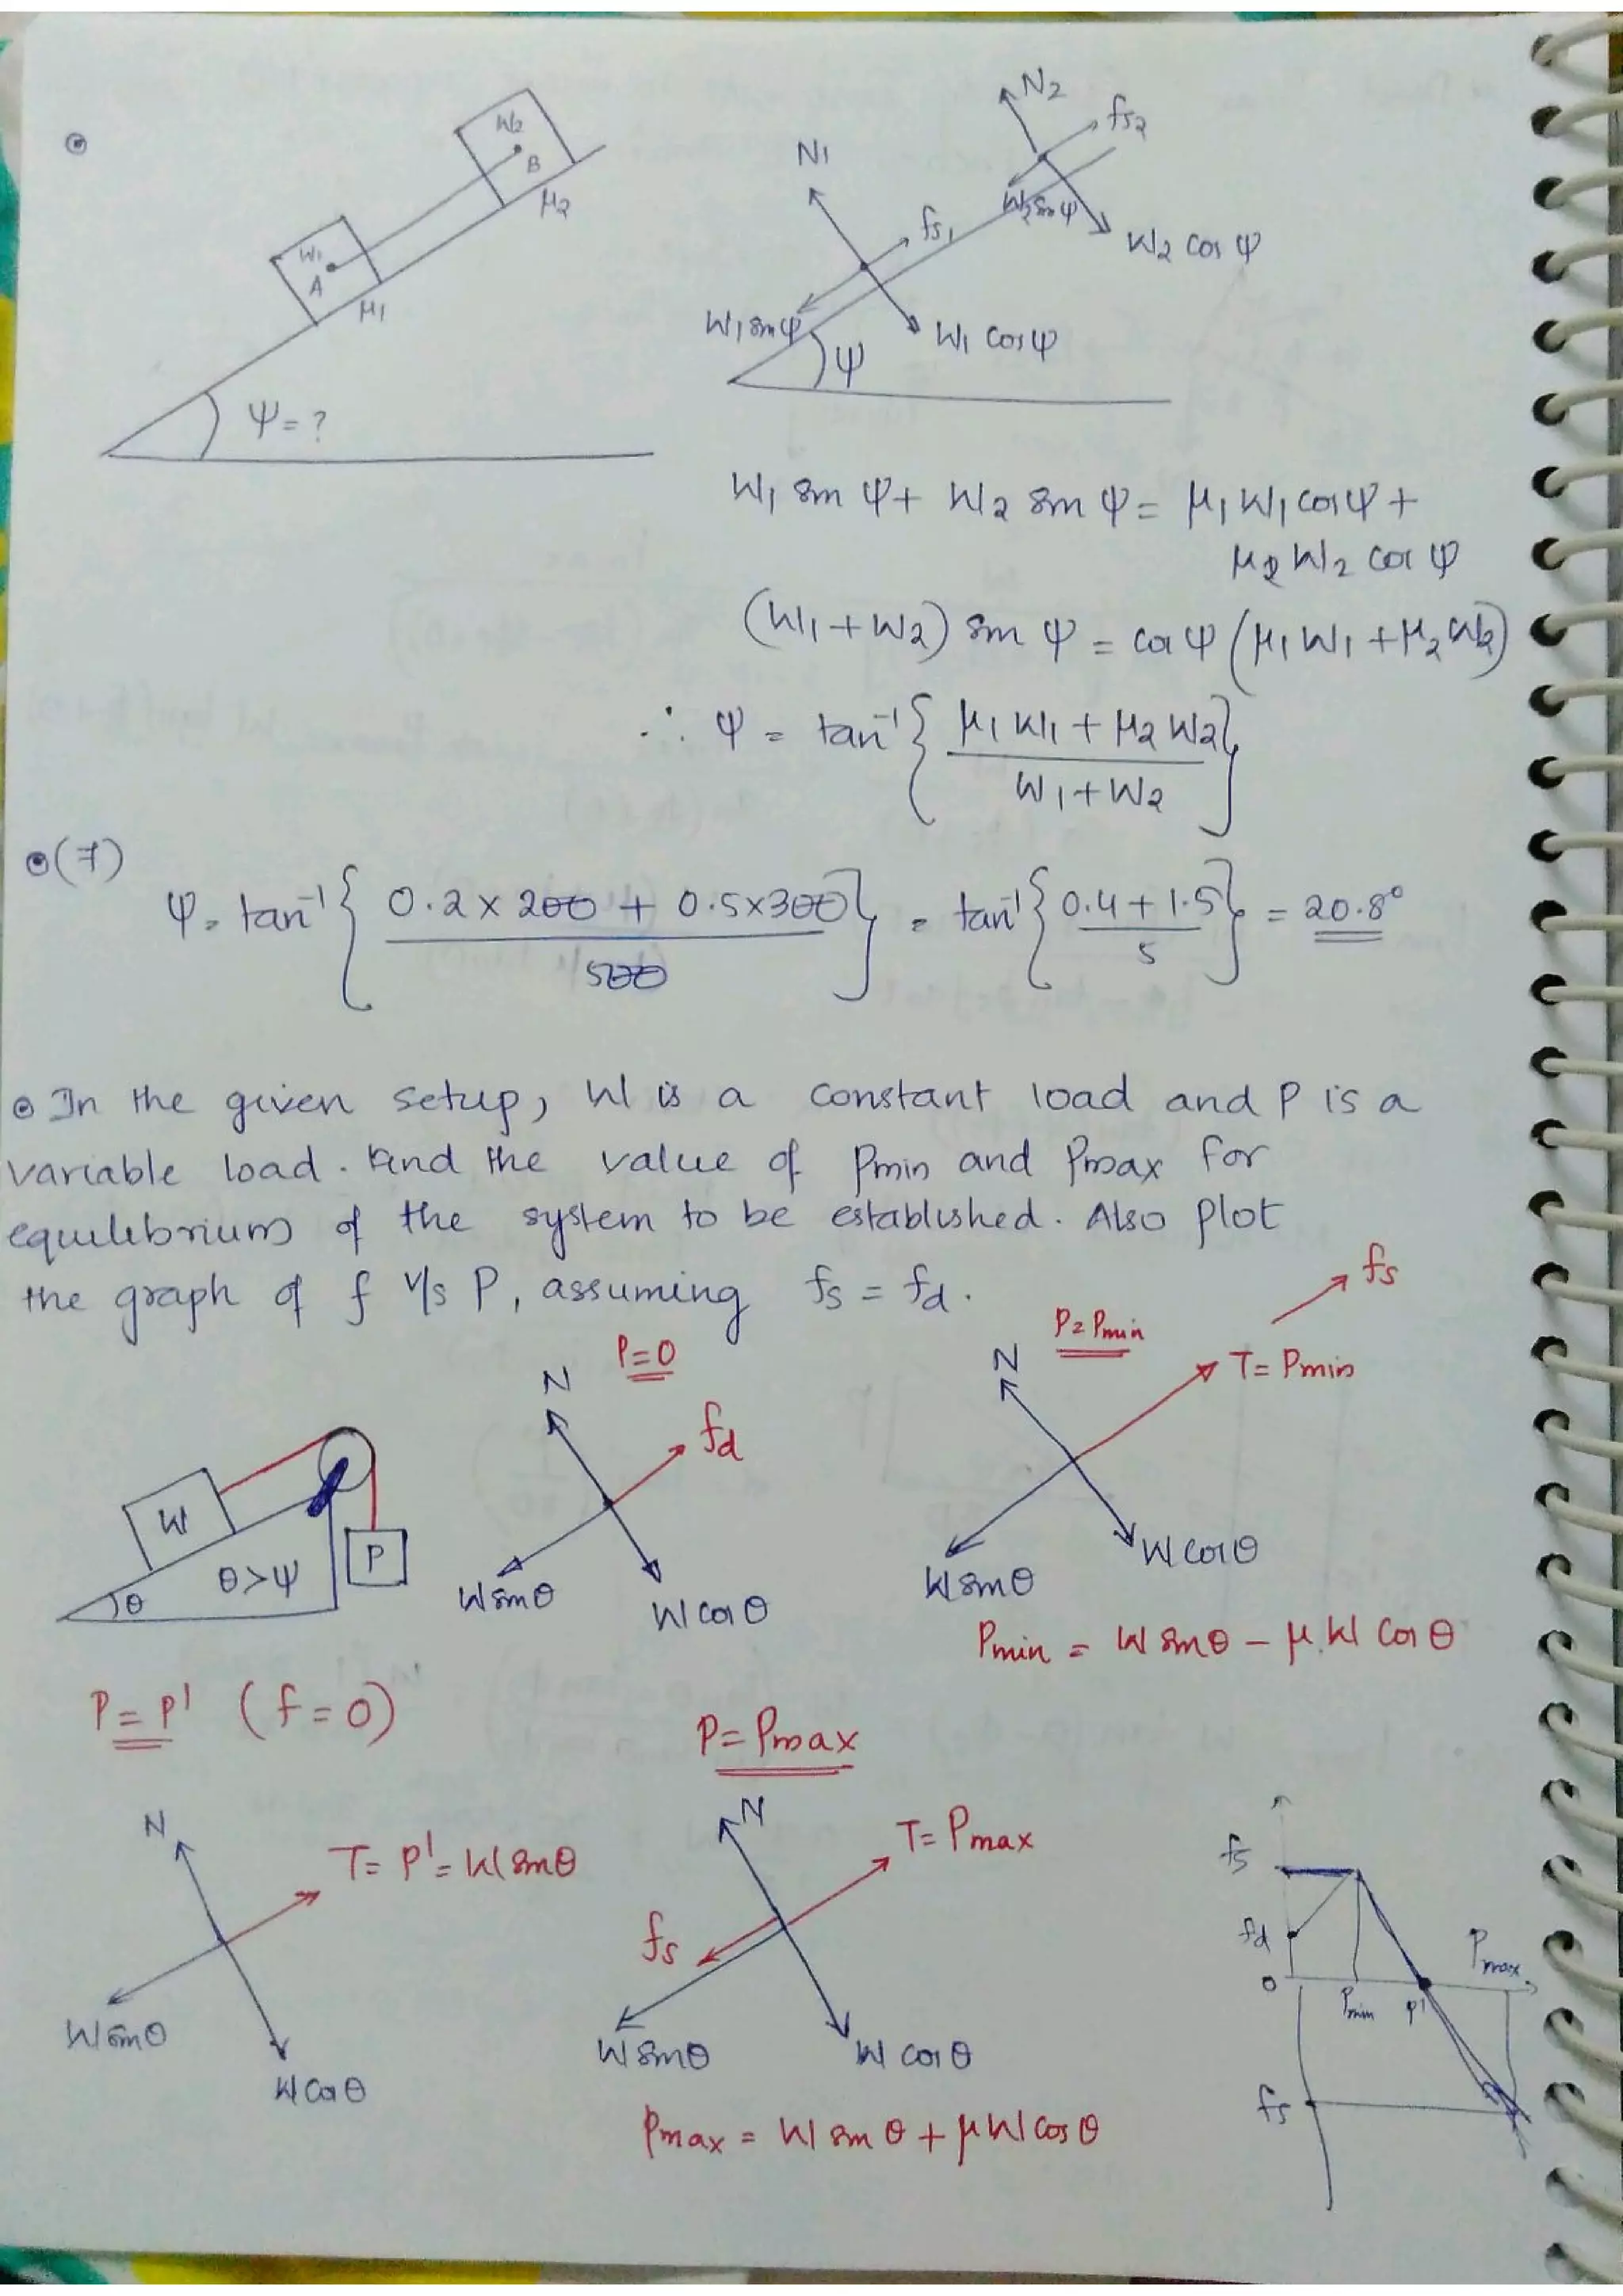 W2
B
μ2
W1
A
μ1
ψ = ?
N2
fs2
N1
W2 sin ψ
fs1
W2 cos ψ
W1 sin ψ
W1 cos ψ
ψ
W1 sin ψ + W2 sin ψ = μ1 W1 cos ψ +
μ2 W2 cos ψ
(W1 + W2) sin ψ = cos ψ (μ1 W1 + μ2 W2)
∴ ψ = tan⁻¹ { (μ1 W1 + μ2 W2) / (W1 + W2) }
(7)
ψ = tan⁻¹ { (0.2 × 200 + 0.5 × 300) / 500 } = tan⁻¹ { (0.4 + 1.5) / 5 } = 20.8°
In the given setup, W is a constant load and P is a
variable load. Find the value of Pmin and Pmax for
equilibrium of the system to be established. Also plot
the graph of f v/s P, assuming fs = fd.
W
P
θ
θ > ψ
P = 0
N
fd
W sin θ
W cos θ
P = Pmin
N
fs
T = Pmin
W sin θ
W cos θ
Pmin = W sin θ − μ.W cos θ
P = P' (f = 0)
N
T = P' = W sin θ
W sin θ
W cos θ
P = Pmax
N
T = Pmax
fs
W sin θ
W cos θ
Pmax = W sin θ + μ W cos θ
fs
fd
0
Pmin
P'
Pmax
fs